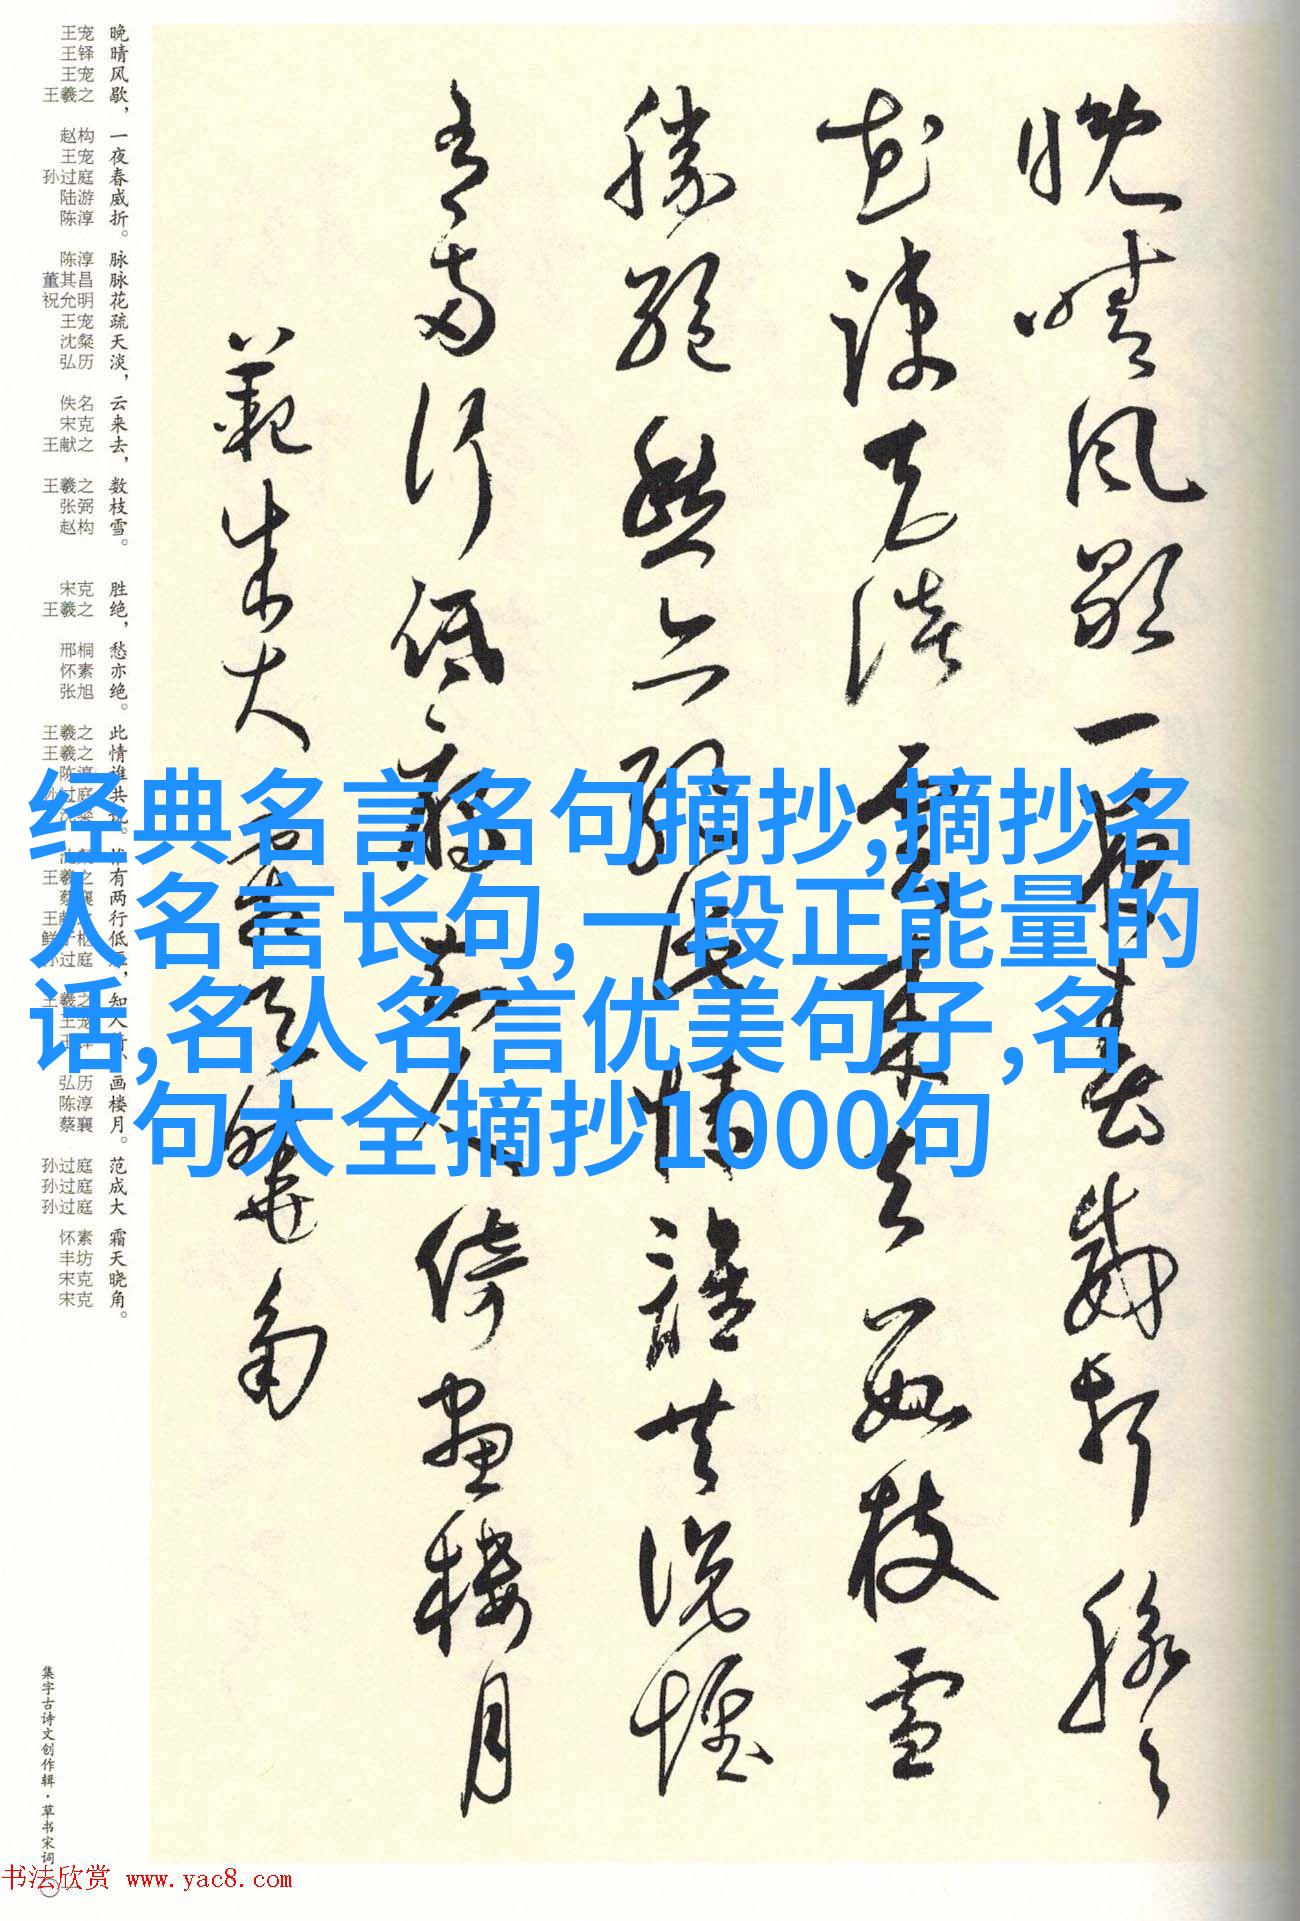 晚晴風歇一夜春威折脉々
花疎天淡雲来去數枝雪
勝絶愁亦絶此情誰共說惟
有兩行低雁知人倚畫樓月
範成大霜天曉角
晚晴风歇，一夜春威折。脉脉花疏天淡，云来去，数枝雪。
胜绝，愁亦绝。此情谁共说。惟有两行低雁，知人倚、画楼月。
范成大
霜天晓角。
王宠
王铎
王宠
王羲之
赵构
王宠
孙过庭
陆游
陈淳
陈淳
董其昌
祝允明
王宠
沈粲
弘历
佚名
宋克
王献之
王羲之
张弼
赵构
宋克
王羲之
邢桐
怀素
张旭
王羲之
王羲之
陈淳
孙过庭
王羲之
蔡襄
鲜于枢
孙过庭
王羲之
王宠
弘历
陈淳
蔡襄
孙过庭
孙过庭
孙过庭
怀素
丰坊
宋克
宋克
经典名言名句摘抄,摘抄名
人名言长句,一段正能量的
话,名人名言优美句子,名
句大全摘抄1000句
集字古诗文创作辑·草书宋词
书法欣赏 www.yac8.com